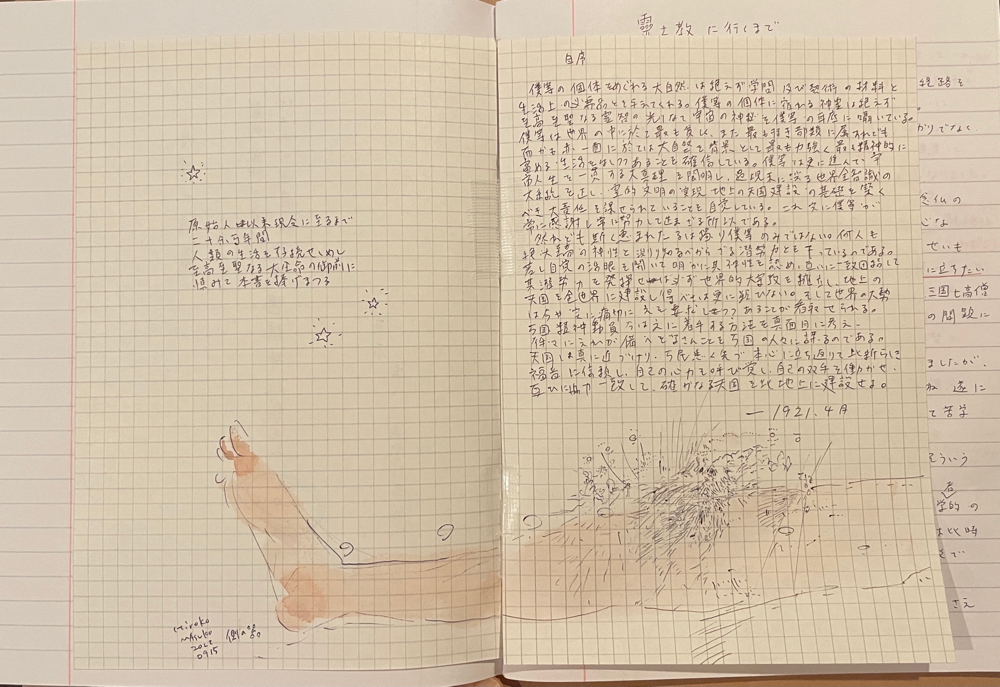 霊土教に行くまで
自序
僕等の個体をめぐれる大自然は絶えず学問及び芸術の材料と
生活上の必需品とを与えてくれる。僕等の個体に宿れる神霊は絶えず
至高至聖なる霊智の光りなて宇宙の神秘を僕等の耳底に囁いている。
僕等は世界の中に於て最も貧しく、また最も弱き部類に属すれども
而かも亦一面に於ては大自然を背景として最も力強く最も精神的に
富める生活をなしつつあることを確信している。僕等は更に進んで宇
宙人生を一貫する大真理を闡明し、過現未に渉る世界全智識の
大系統を正し、霊的文明の実現、地上の天国建設の基礎を築く
べき大責任を課せられていることを自覚している。これ故に僕等が
常に感謝し常に努力して止まざる所以である。
然れども斯く恵まれたるは独り僕等のみではない。何人も
至大至高の神性と測り知るべからざる潜勢力とを有っているのである。
若し自覚の活眼を開いて明かに其神性を認め、互いに一致団結して
其潜勢力を発揮せば必ず世界的大学教を樹立し、地上の
天国を全世界に建設し得べきは更に疑ひない。そして世界の大勢
は今や実に痛切に之を要求しつつあることが看取せられる。
万国精神勤員
天国は真に近づけり、万民悉く先づ本心に立ち返りて此新らしき
福音に信頼し、自己の心力を呼び覚し、自己の双手を働かせ、
互ひに協力一致して、確かなる天国を此地上に建設せよ。
— 1921. 4月
原始人出以来現今に至るまで
二十余万年間
人類の生活を存続せしめし
至高至聖なる大生命の御前に
慎みて本書を捧げまつる
Hiroko
Masuko
2022
0915
提路を
がりでなく、
念仏の
じな
せいも
に立ちたい
三国七高僧
の問題に
ましたが、
ね 遂に
て苦学
こういう
者
学的の
は此時
まで
さえ